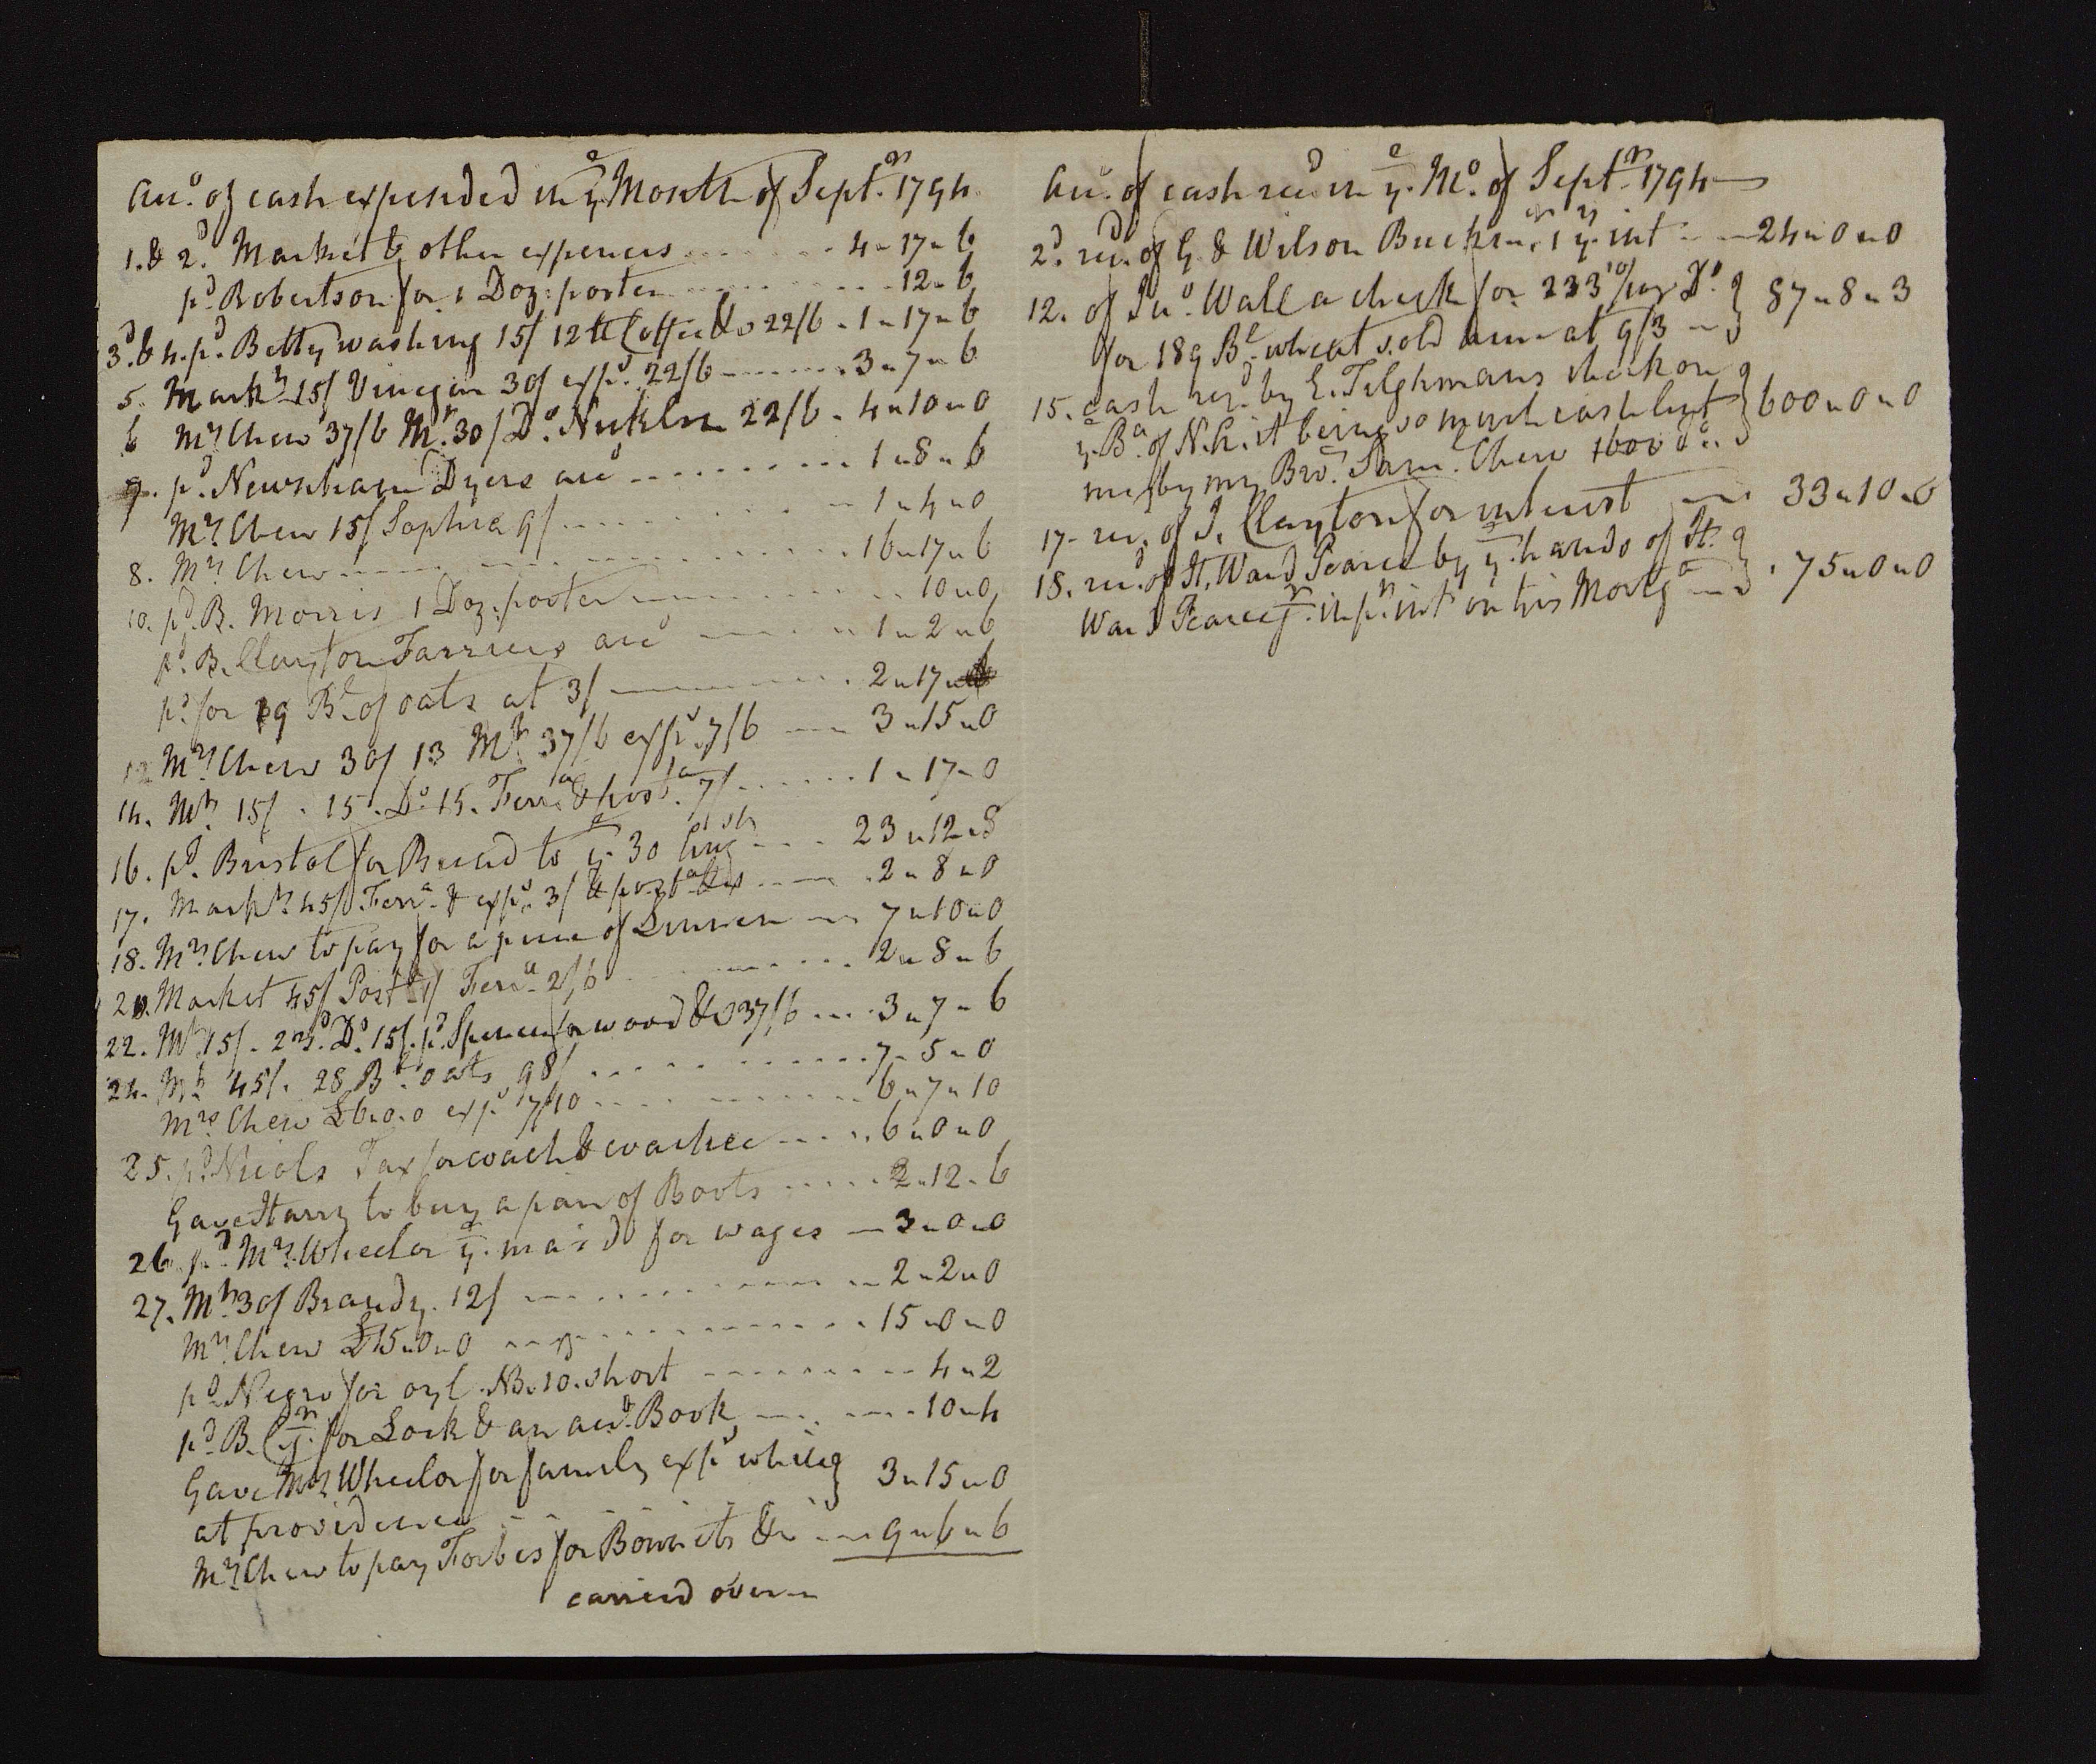 Accot. of cash expended in ye. Month of Septr. 1794
1. & 2d. Market & other expences ........ 4 " 17 " 6
pd. Robertson for 1 Doz: porter ......... 12 " 6
3d. & 4. pd. Betty washing 15/ 12 lb Coffee &c 22/6 . 1 " 17 " 6
5. Markt. 15/ Vinegar 30/ exps. 22/6 ....... 3 " 7 " 6
6 Mrs. Chew 37/6 Mt. 30/ Do. Nicklin 22/6 . 4 " 10 " 0
7. pd. Newnham Dyers acco ......... 1 " 8 " 6
Mrs. Chew 15/ Sophia 9/ ......... 1 " 4 " 0
8. Mrs. Chew ......... 16 " 17 " 6
10. pd. B. Morris 1 Doz. porter ......... 10 " 0
pd. B. Clayton Farriers acco ......... 1 " 2 " 6
pd. for 19 Bls. of oats at 3/ ......... 2 " 17 "
12 Mrs. Chew 30/ 13 Mt. 37/6 exps. 7/6 ..... 3 " 15 " 0
14. Mt. 15/ . 15. Do. 15. Ferra. & posta. 7/ ...... 1 " 17 " 0
16. pd. Bristol for Bread to ye. 30 ... 23 " 12 " 8
17. Markt. 45/ Ferra. & exps. 3/ & posta. ..... 2 " 8 " 0
18. Mrs. Chew to pay for a piece of Linnen ... 7 " 10 " 0
20. Market 45/ Posta. 1/ Ferra. 2/6 ......... 2 " 8 " 6
22. Mt. 15/ . 23d. Do. 15/. pd. Spencer for wood &c 37/6 .... 3 " 7 " 6
24. Mt. 45/. 28 Bls. oats 98/ ......... 7 " 5 " 0
Mrs. Chew £6.0.0 exps. 7/10 ......... 6 " 7 " 10
25. pd. Nicols Tax for coach & coachee ..... 6 " 0 " 0
Gave Harry to buy a pair of Boots ..... 2 " 12 " 6
26 pd. Mrs. Wheeler ye. maid for wages — 3 " 0 " 0
27. Mt. 30/ Brandy. 12/ ......... 2 " 2 " 0
Mrs. Chew £15 " 0 " 0 ......... 15 " 0 " 0
pd. Negro for oyl. NB. 10. short ......... 4 " 2
pd. B. C. for Lock & an acct. Book ......... 10 " 4
Gave Mrs. Wheelor for family exps. while } 3 " 15 " 0
at providence
Mrs. Chew to pay Forbes for Bonnets &c .... 9 " 6 " 6
carried over
Acco. of cash recd in ye. Mo. of Septr. 1794
2d. recd. of G. & Wilson Buckr. 1 yr. int .... 24 " 0 " 0
12. of Jno. Wall a check for 233 10/100 Ds. } 87 " 8 " 3
for 189 Bls. wheat sold him at 9/3
15. cash recd. by E. Tilghmans check on } 600 " 0 " 0
ye. Ba. of N. A. it being so much cash lent
me by my Bror. Saml. Chew 1600 Ds.
17. recd. of J. Clayton for interest .... 33 " 10 " 0
18. recd. of H. Ward Pearce by ye. hands of H. } 75 " 0 " 0
Ward Pearce Jr. in pt. int on his Mortge